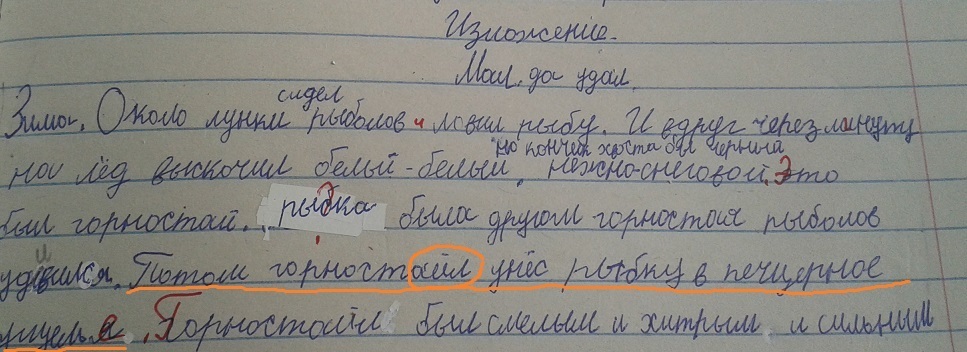 Изложение.
Мал, да удал.
Зима. Около лунки сидел рыболов и ловил рыбу. И вдруг через минуту
на лёд выскочил белый-белый, но кончик хвоста был чернина нежно-снеговой. Это
был горностай. рыбка была другом горностая рыболов
удивился. Потом горностайл унёс рыбку в пещерное
ущелье. Горностайл был смелым и хитрым и сильным